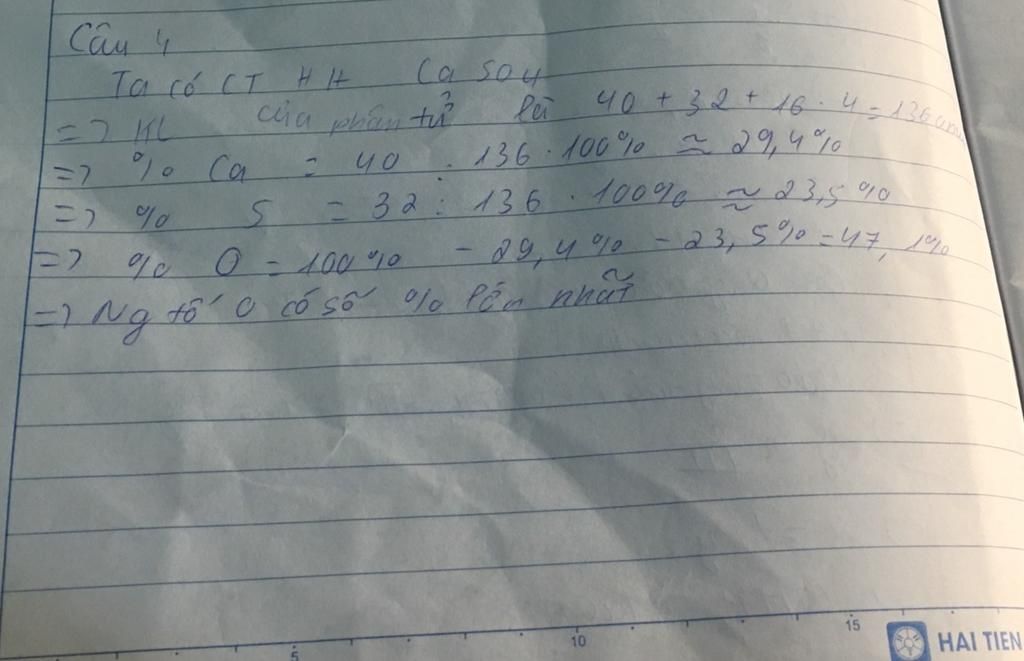 Câu 4
Ta có CT HH CaSO4
=> KL của phân tử là 40 + 32 + 16 . 4 = 136 amu
=> % Ca = 40 : 136 . 100% ≈ 29,4%
=> % S = 32 : 136 . 100% ≈ 23,5%
=> % O = 100% - 29,4% - 23,5% = 47,1%
=> Ng tố O có số % lớn nhất
5 10 15
HAI TIEN